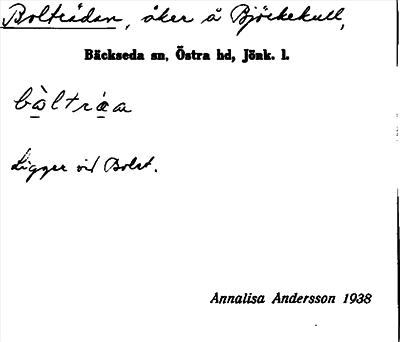 Boltrådan, åker å Björkekull,
Bäckseda sn, Östra hd, Jönk. l.
bòltráa
Ligger vid Bolst.
Annalisa Andersson 1938